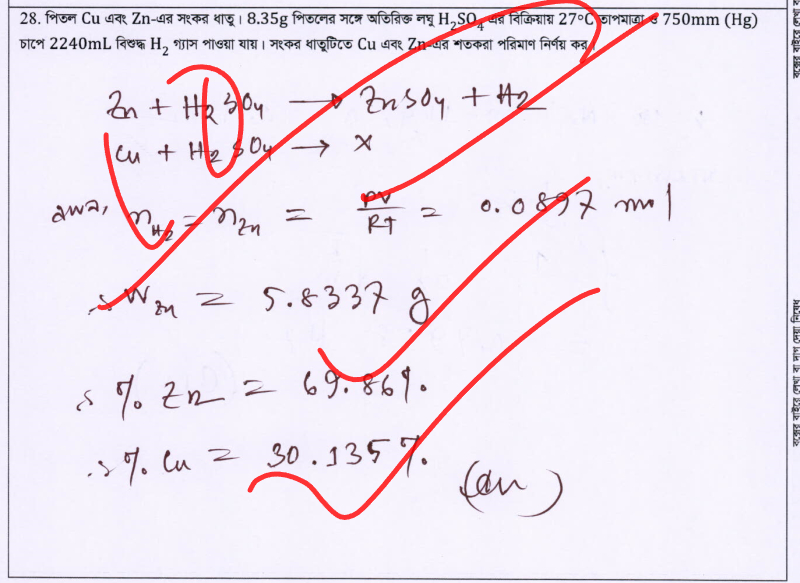 28. পিতল Cu এবং Zn-এর সংকর ধাতু। 8.35g পিতলের সঙ্গে অতিরিক্ত লঘু H₂SO₄ এর বিক্রিয়ায় 27°C তাপমাত্রা ও 750mm (Hg)
চাপে 2240mL বিশুদ্ধ H₂ গ্যাস পাওয়া যায়। সংকর ধাতুটিতে Cu এবং Zn-এর শতকরা পরিমাণ নির্ণয় কর।
Zn + H₂SO₄ → ZnSO₄ + H₂
Cu + H₂SO₄ → ×
n_H₂ = n_Zn = PV/RT = 0.0897 mol
W_Zn = 5.8337 g
% Zn = 69.86%.
% Cu = 30.135%.